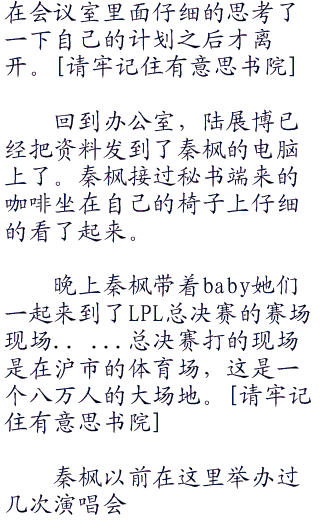 在会议室里面仔细的思考了
一下自己的计划之后才离
开。[请牢记住有意思书院]
回到办公室，陆展博已
经把资料发到了秦枫的电脑
上了。秦枫接过秘书端来的
咖啡坐在自己的椅子上仔细
的看了起来。
晚上秦枫带着baby她们
一起来到了LPL总决赛的赛场
现场.. ...总决赛打的现场
是在沪市的体育场，这是一
个八万人的大场地。[请牢记
住有意思书院]
秦枫以前在这里举办过
几次演唱会